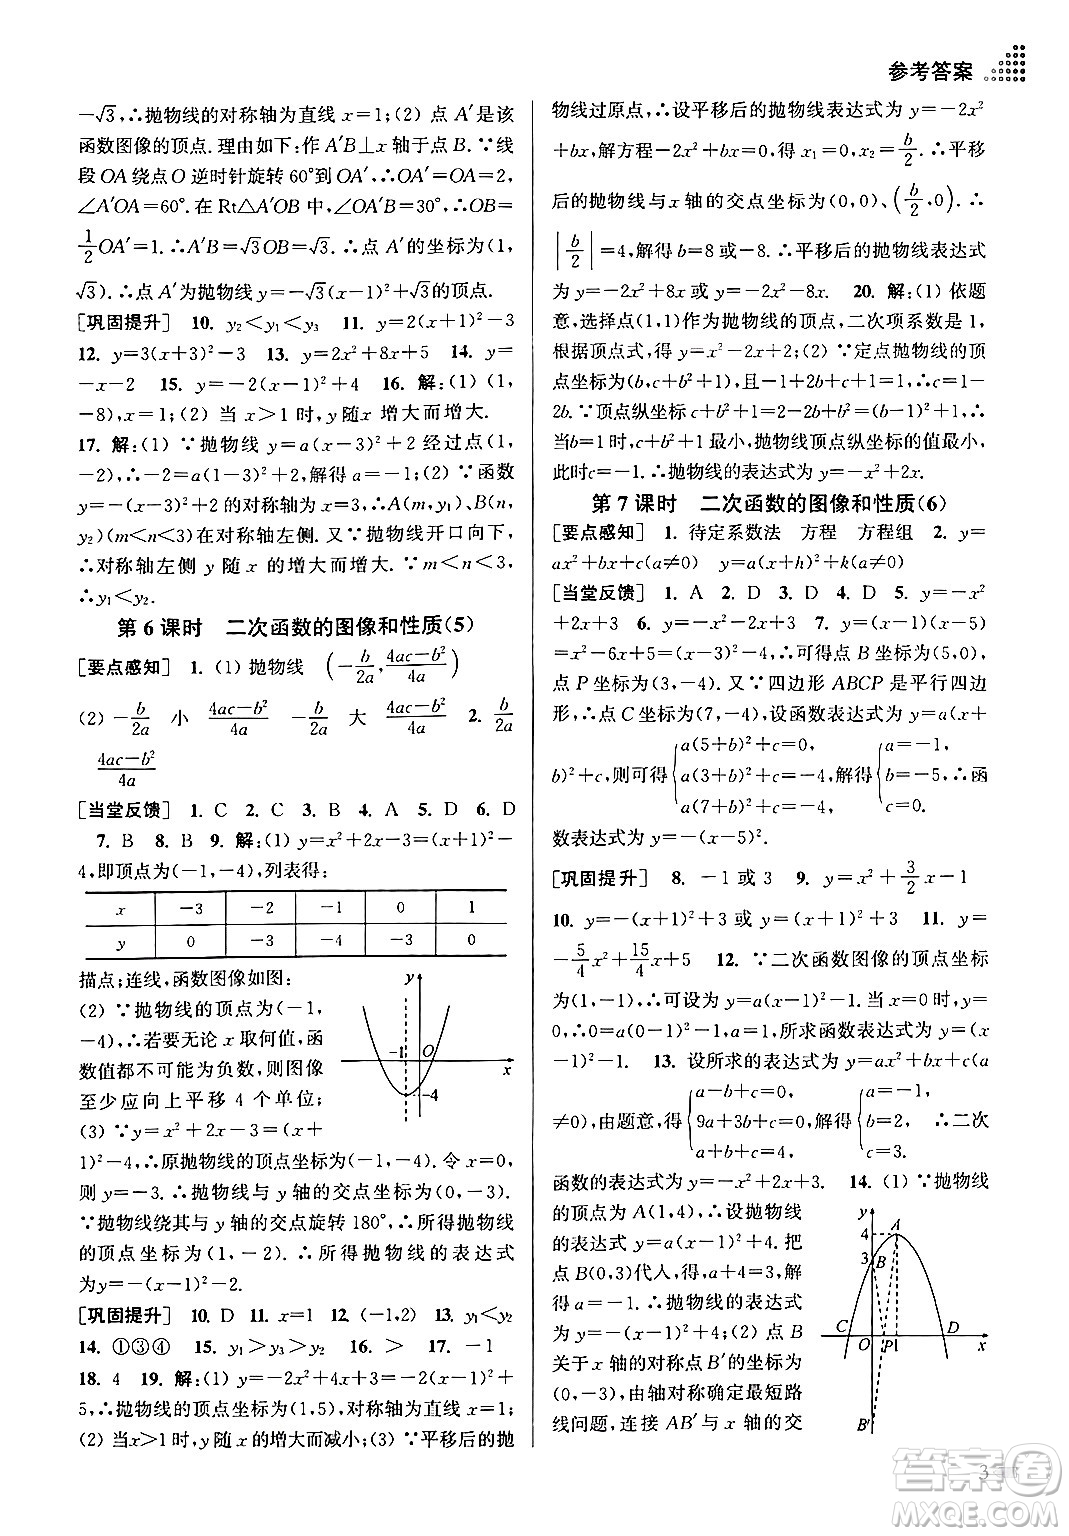 参考答案
－√3,∴抛物线的对称轴为直线 x＝1;(2) 点 A′是该
函数图像的顶点. 理由如下:作 A′B⊥x 轴于点 B. ∵线
段 OA 绕点 O 逆时针旋转 60°到 OA′,∴OA′＝OA＝2,
∠A′OA＝60°. 在 Rt△A′OB 中,∠OA′B＝30°,∴OB＝
1/2 OA′＝1. ∴A′B＝√3OB＝√3,∴点 A′的坐标为(1,
√3). ∴点 A′为抛物线 y＝－√3(x－1)²＋√3的顶点.
[巩固提升] 10. y₂＜y₁＜y₃ 11. y＝2(x＋1)²－3
12. y＝3(x＋3)²－3 13. y＝2x²＋8x＋5 14. y＝
－x－2 15. y＝－2(x－1)²＋4 16. 解:(1) (1,
－8),x＝1;(2) 当 x＞1 时,y 随x 增大而增大.
17. 解:(1) ∵抛物线 y＝a(x－3)²＋2 经过点(1,
－2),∴－2＝a(1－3)²＋2,解得a＝－1;(2) ∵函数
y＝－(x－3)²＋2 的对称轴为x＝3,∴A(m,y₁)、B(n,
y₂)(m＜n＜3)在对称轴左侧. 又∵抛物线开口向下,
∴对称轴左侧 y 随 x 的增大而增大. ∵m＜n＜3,
∴y₁＜y₂.
第 6 课时 二次函数的图像和性质(5)
[要点感知] 1. (1) 抛物线 (－b/2a, (4ac－b²)/4a)
(2) －b/2a 小 (4ac－b²)/4a －b/2a 大 (4ac－b²)/4a 2. b/2a
(4ac－b²)/4a
[当堂反馈] 1. C 2. C 3. B 4. A 5. D 6. D
7. B 8. B 9. 解:(1) y＝x²＋2x－3＝(x＋1)²－
4,即顶点为(－1,－4),列表得:
x －3 －2 －1 0 1
y 0 －3 －4 －3 0
描点;连线,函数图像如图:
(2) ∵抛物线的顶点为(－1,
－4),∴若要无论 x 取何值,函
数值都不可能为负数,则图像
至少应向上平移 4 个单位;
(3) ∵y＝x²＋2x－3＝(x＋
y
－1 O
x
－4
1)²－4,∴原抛物线的顶点坐标为(－1,－4). 令 x＝0,
则 y＝－3. ∴抛物线与 y 轴的交点坐标为(0,－3).
∵抛物线绕其与 y 轴的交点旋转 180°,∴所得抛物线
的顶点坐标为(1,－2). ∴所得抛物线的表达式
为y＝－(x－1)²－2.
[巩固提升] 10. D 11. x＝1 12. (－1,2) 13. y₁＜y₂
14. ①③④ 15. y₁＞y₃＞y₂ 16. ＞ 17. －1
18. 4 19. 解:(1) y＝－2x²＋4x＋3＝－2(x－1)²＋
5,∴抛物线的顶点坐标为(1,5),对称轴为直线 x＝1;
(2) 当x＞1 时,y 随x 的增大而减小;(3) ∵平移后的抛
物线过原点,∴设平移后的抛物线表达式为 y＝－2x²
＋bx,解方程－2x²＋bx＝0,得 x₁＝0,x₂＝b/2. ∴平移
后的抛物线与x 轴的交点坐标为(0,0)、(b/2,0). ∴
|b/2|＝4,解得 b＝8 或－8. ∴平移后的抛物线表达式
为 y＝－2x²＋8x 或 y＝－2x²－8x. 20. 解:(1) 依题
意,选择点(1,1)作为抛物线的顶点,二次项系数是 1,
根据顶点式,得 y＝x²－2x＋2;(2) ∵定点抛物线的顶
点坐标为(b,c＋b²＋1),且－1＋2b＋c＋1＝1,∴c＝1－
2b. ∵顶点纵坐标 c＋b²＋1＝2－2b＋b²＝(b－1)²＋1,∴
当b＝1 时,c＋b²＋1 最小,抛物线顶点纵坐标的值最小,
此时c＝－1. ∴抛物线的表达式为 y＝－x²＋2x.
第 7 课时 二次函数的图像和性质(6)
[要点感知] 1. 待定系数法 方程 方程组 2. y＝
ax²＋bx＋c(a≠0) y＝a(x＋h)²＋k(a≠0)
[当堂反馈] 1. A 2. D 3. D 4. D 5. y＝－x²
＋2x＋3 6. y＝x²－x－2 7. y＝(x－1)(x－5)
＝x²－6x＋5＝(x－3)²－4,∴可得点 B 坐标为(5,0),
点 P 坐标为(3,－4). 又∵四边形 ABCP 是平行四边
形,∴点 C 坐标为(7,－4),设函数表达式为 y＝a(x＋
b)²＋c,则可得{a(5＋b)²＋c＝0, a(3＋b)²＋c＝－4, a(7＋b)²＋c＝－4, 解得{a＝－1, b＝－5, c＝0. ∴函
数表达式为 y＝－(x－5)².
[巩固提升] 8. －1 或 3 9. y＝x²＋3/2 x－1
10. y＝－(x＋1)²＋3 或 y＝(x＋1)²＋3 11. y＝
－5/4 x²＋15/4 x＋5 12. ∵二次函数图像的顶点坐标
为(1,－1),∴可设为 y＝a(x－1)²－1. 当 x＝0 时,y＝
0,∴0＝a(0－1)²－1,a＝1,所求函数表达式为 y＝(x
－1)²－1. 13. 设所求的表达式为 y＝ax²＋bx＋c(a
≠0),由题意,得{a－b＋c＝0, 9a＋3b＋c＝0, a＋b＋c＝4, 解得{a＝－1, b＝2, c＝3. ∴二次
函数的表达式为 y＝－x²＋2x＋3. 14. (1) ∵抛物线
的顶点为 A(1,4),∴设抛物线
的表达式为 y＝a(x－1)²＋4. 把
点 B(0,3)代入,得 a＋4＝3,解得
a＝－1. ∴抛物线的表达式为
y＝－(x－1)²＋4;(2) 点 B
关于 x 轴的对称点 B′的坐标为
(0,－3),由轴对称最短路
线问题,连接 AB′与 x 轴的交
y
4 A
3 B
C D
O P 1 x
B′
3
答案圈
MXQE.COM